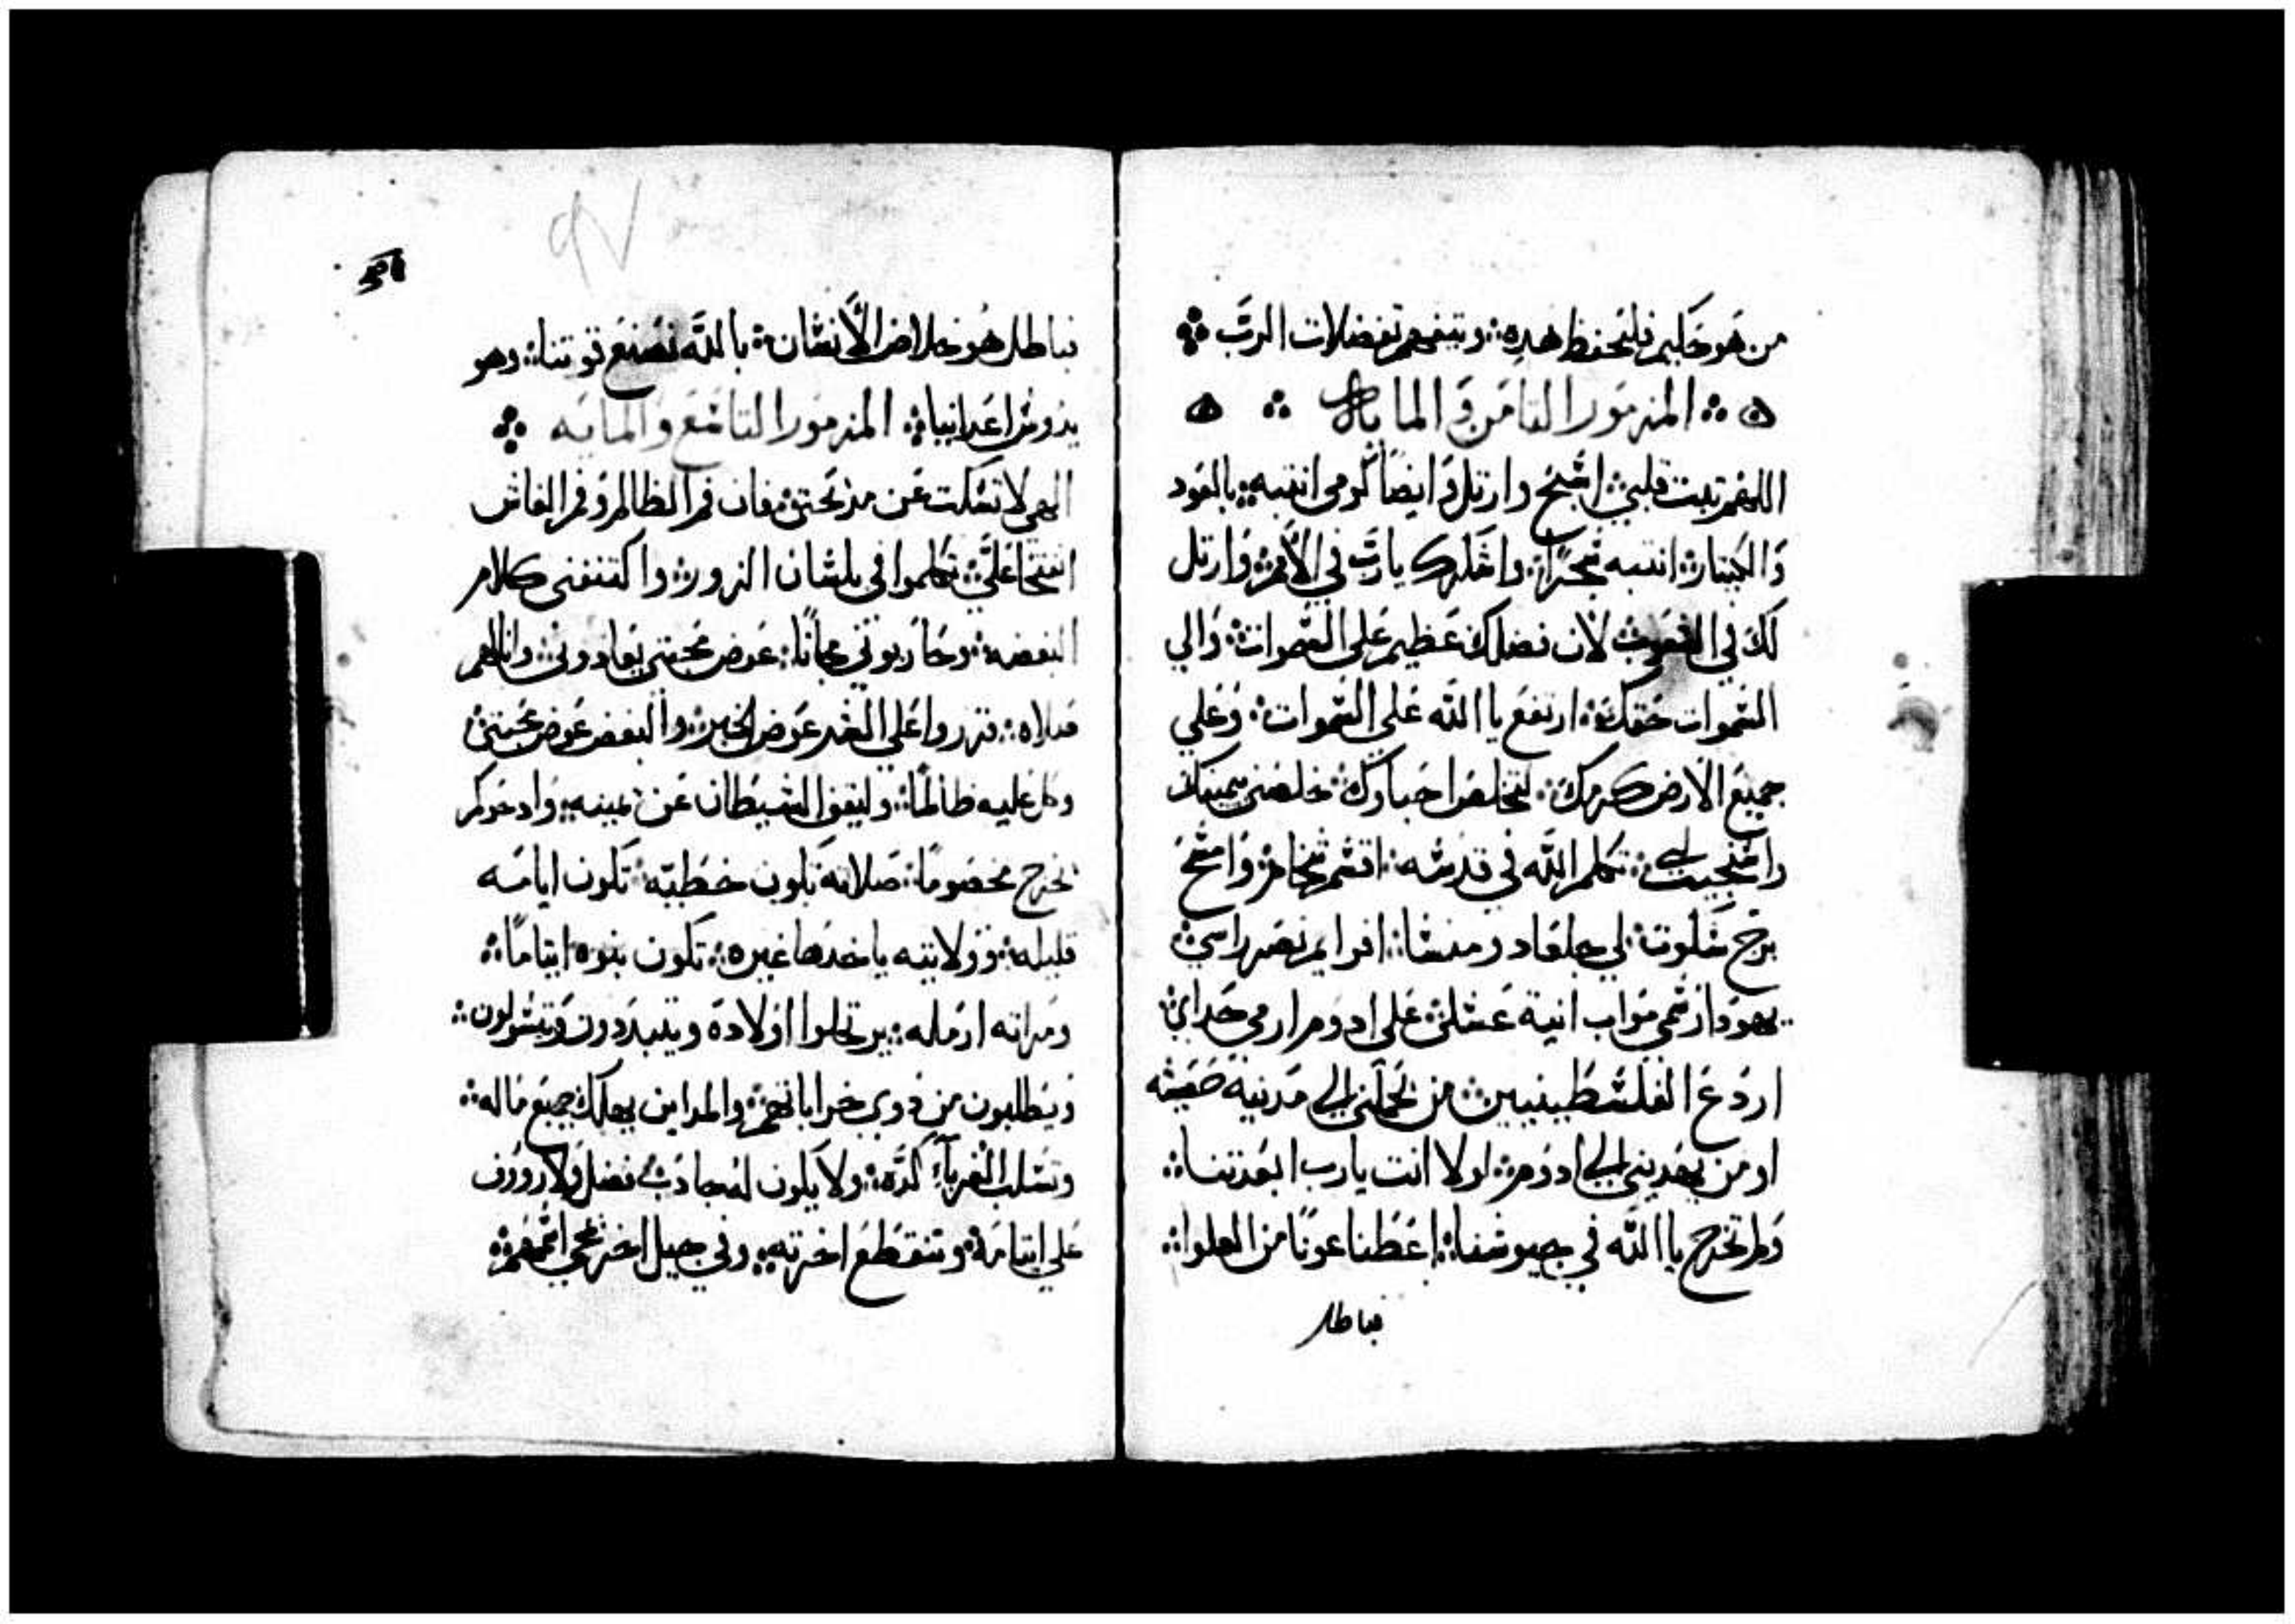 من هو حكيم فليحفظ هذه؛ ويتفهم تفضلات الرب
المزمور التامن والمايه
اللهم تبت قلبي؛ اسبح وارتل وايضا كرمي انتبه؛ بالعود
والكيتار؛ انتبه سحرًا؛ واشكرك يارب في الأمم؛ وارتل
لك في الشعوب؛ لان فضلك عظيم علي السموات؛ والي
السموات حقك؛ ارتفع يا الله علي السموات؛ وعلي
جميع الارض كرمك؛ لتخلص احباوك؛ خلصني بيمينك
واستجيب لي؛ تكلم الله في قدسه؛ اقسم شخام؛ وامسح
برج سكوت؛ لي جلعاد ومنسا؛ افرايم نصر راسي؛
يهودا رسمي مواب انية غسلي؛ علي ادوم ارمي حداي؛
اردع الفلسطينيين؛ من يحملني الي مدينة حصينه
او من يهديني الي ادوم؛ لولا انت يارب ابعدتنا؛
ولم تخرج يا الله في جيوشنا؛ اعطنا عونًا من العلو؛
فباطل
فباطل هو خلاص الأنسان؛ بالله نصنع قوتنا؛ وهو
يدوس اعدانيا؛ المزمور التاسع والمايه
الهي لا تسكت عن مدحتي؛ فان فم الظالم وفم الغاش
انفتحا علي؛ تكلموا في بلسان الزور؛ واكتنفني كلام
البغضه؛ وحاربوني مجانًا؛ عوض محبتي يعادوني؛ وانا لهم
صلاه؛ قرروا علي الشر عوض الخير؛ والبغض عوض محبتي؛
وكل عليه ظالمًا؛ وليقف الشيطان عن يمينه؛ واد حوكم
يخرج مخصومًا؛ صلاته تكون خطيه؛ تكون ايامه
قليله؛ وولايته ياخدها غيره؛ تكون بنوه ايتامًا؛
ومراته ارمله؛ يرتحلوا اولاده ويتبددون ويتسولون؛
ويطلبون من دوي خراباتهم؛ والمداين يهلك جميع ماله؛
وتسلب الغرباء كده؛ ولا يكون له جادب فضل ولا رووف
علي ايتامه؛ وتنقطع اخرته؛ وفي جيل اخر يمحي اسمهم؛